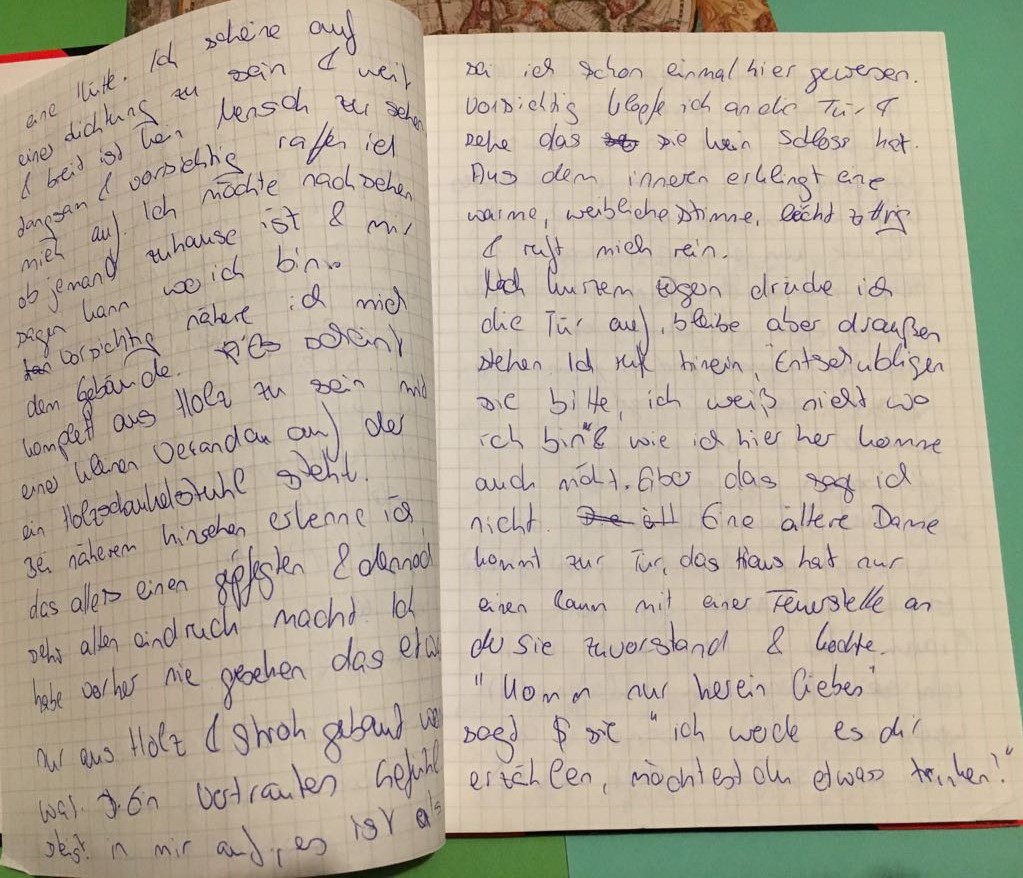 eine Hütte. Ich scheine auf
einer Lichtung zu sein & weit
& breit ist kein Mensch zu sehen
Langsam & vorsichtig raffe ich
mich auf. Ich möchte nachsehen
ob jemand zuhause ist & mir
sagen kann wo ich bin.
Vorsichtig nähere ich mich
dem Gebäude. Es scheint
komplett aus Holz zu sein mit
einer kleinen Veranda auf der
ein Holzschaukelstuhl steht.
Bei näherem hinsehen erkenne ich
das alles einen gepflegten & dennoch
sehr alten eindruck macht. Ich
habe vorher nie gesehen das etwas
nur aus Holz & Stroh gebaut
war. Ein vertrautes Gefühl
steigt in mir auf, es ist als
sei ich schon einmal hier gewesen.
Vorsichtig klopfe ich an die Tür &
sehe das sie kein Schloss hat.
Aus dem inneren erklingt eine
warme, weibliche stimme, leicht zittrig
& ruft mich rein.
Nach kurzem zögern drücke ich
die Tür auf, bleibe aber draußen
stehen. Ich rufe hinein, "Entschuldigen
sie bitte, ich weiß nicht wo
ich bin" & wie ich hier her komme
auch nicht. Aber das sag ich
nicht. Eine ältere Dame
kommt zur Tür, das Haus hat nur
einen Raum mit einer Feuerstelle an
der sie zuvor stand & kochte.
"Komm nur herein Liebes"
sagt sie "ich werde es dir
erzählen, möchtest du etwas trinken?"